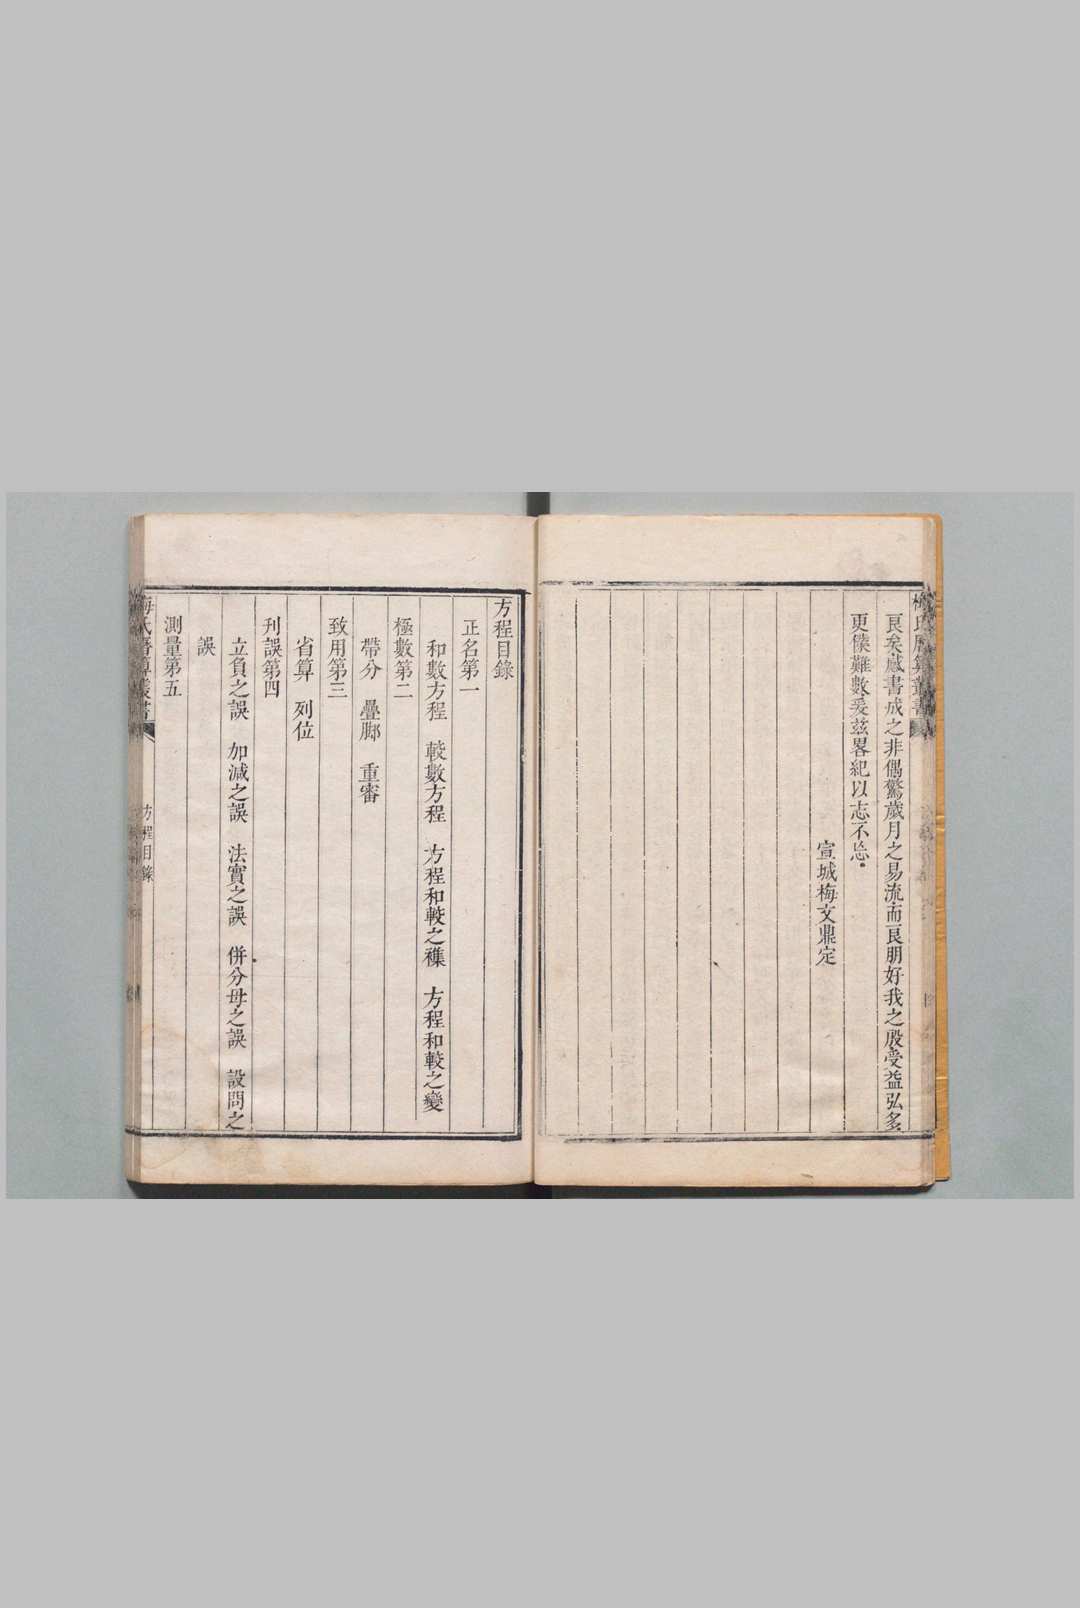 艮矣感書成之非偶驚歲月之易流而艮朋好我之殷受益弘多
更僕難數爰兹畧紀以志不忘
宣城梅文鼎定
方程目錄
正名第一
和數方程　較數方程　方程和較之襍　方程和較之變
極數第二
帶分　疊脚　重審
致用第三
省算　列位
刋誤第四
立負之誤　加減之誤　法實之誤　併分母之誤　設問之
誤
測量第五
方程目錄